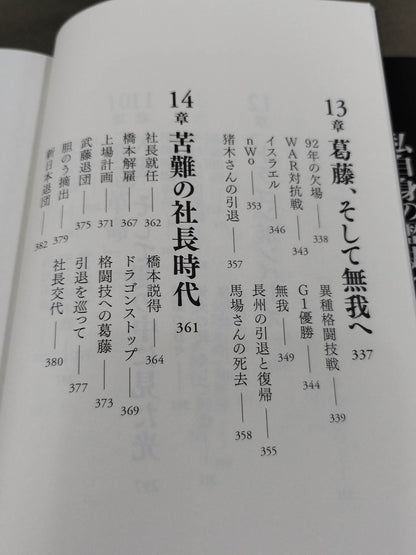 13章 葛藤、そして無我へ 337
92年の欠場 ―― 338 異種格闘技戦 ―― 339
WAR対抗戦 ―― 343 G1優勝 ―― 344
イスラエル ―― 346 無我 ―― 349
nWo ―― 353 長州の引退と復帰 ―― 355
猪木さんの引退 ―― 357 馬場さんの死去 ―― 358
14章 苦難の社長時代 361
社長就任 ―― 362 橋本説得 ―― 364
橋本解雇 ―― 367 ドラゴンストップ ―― 369
上場計画 ―― 371 格闘技への葛藤 ―― 373
武藤退団 ―― 375 引退を巡って ―― 377
胆のう摘出 ―― 379 社長交代 ―― 380
新日本退団 ―― 382